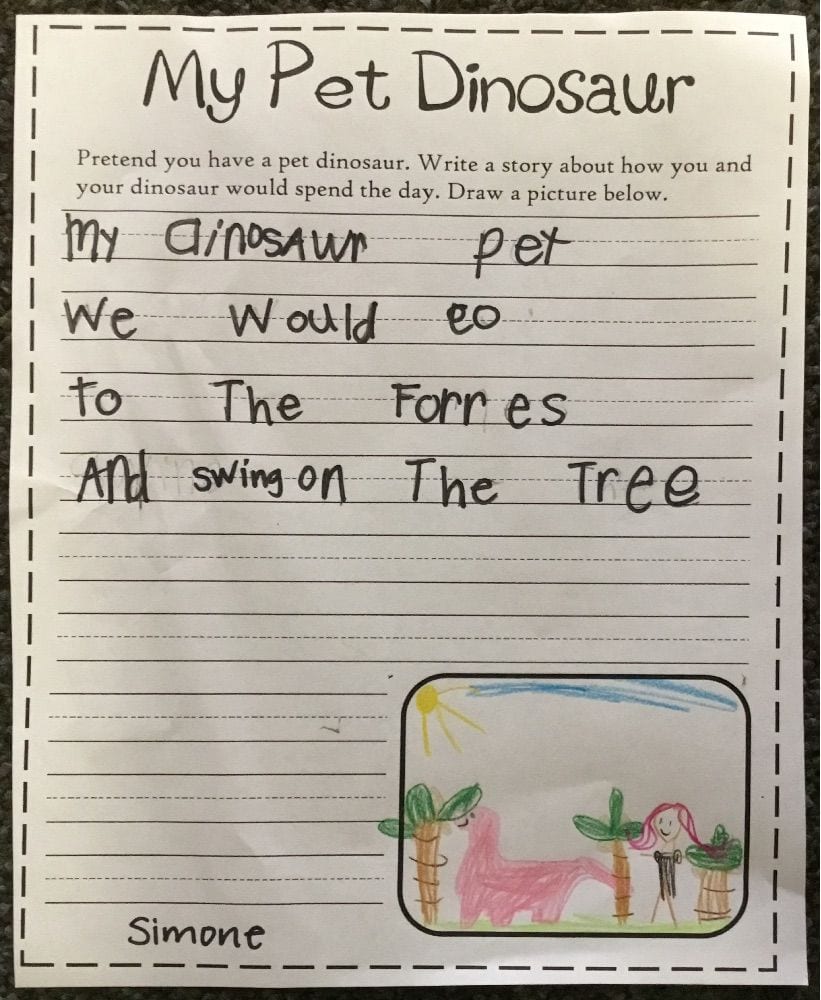 My Pet Dinosaur
Pretend you have a pet dinosaur. Write a story about how you and
your dinosaur would spend the day. Draw a picture below.
My dinosAur pet
We Would eo
to The Forr es
And swing on The Tree
Simone